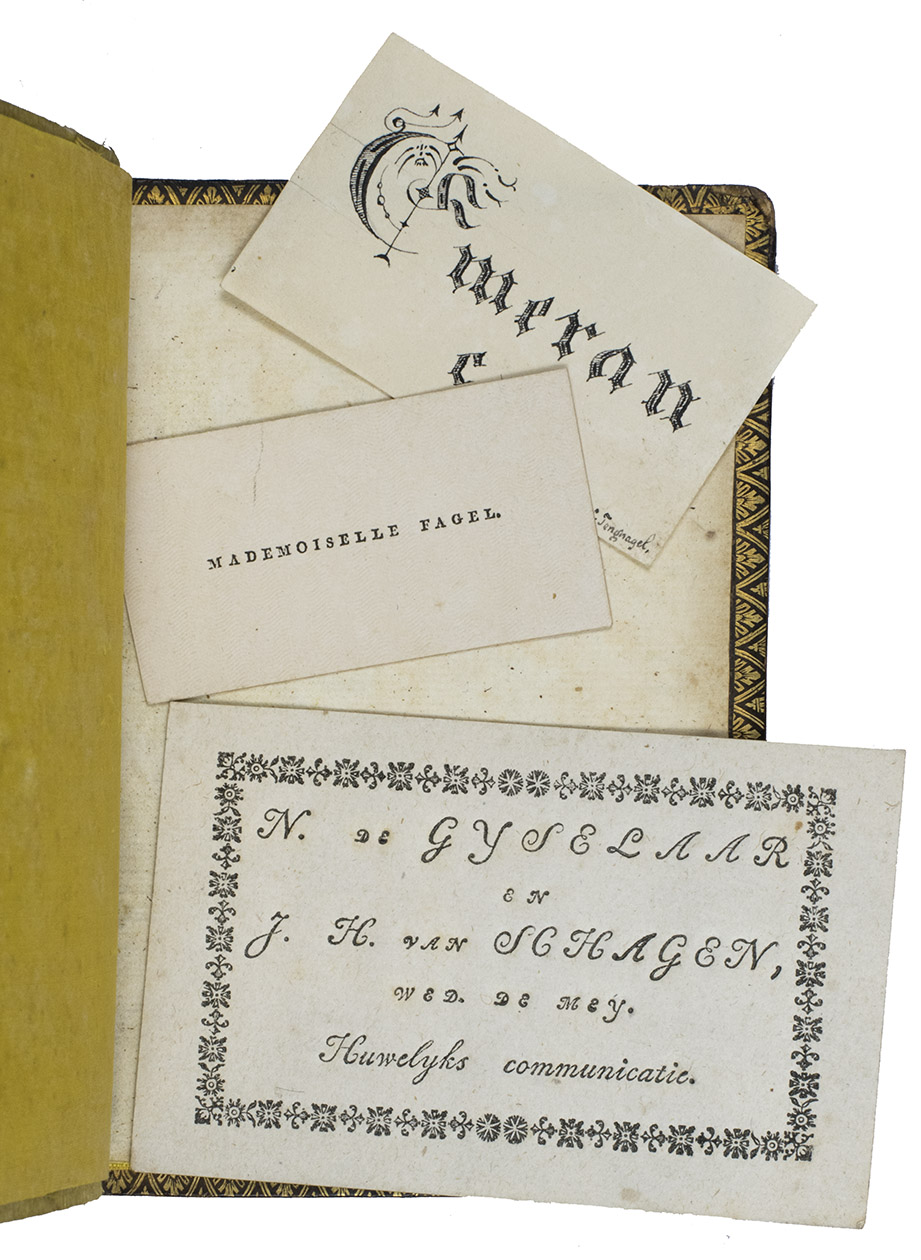 meran
Tengnagel,
MADEMOISELLE FAGEL.
N. DE GYSELAAR
EN
J. H. VAN SCHAGEN,
WED. DE MEY.
Huwelyks communicatie.